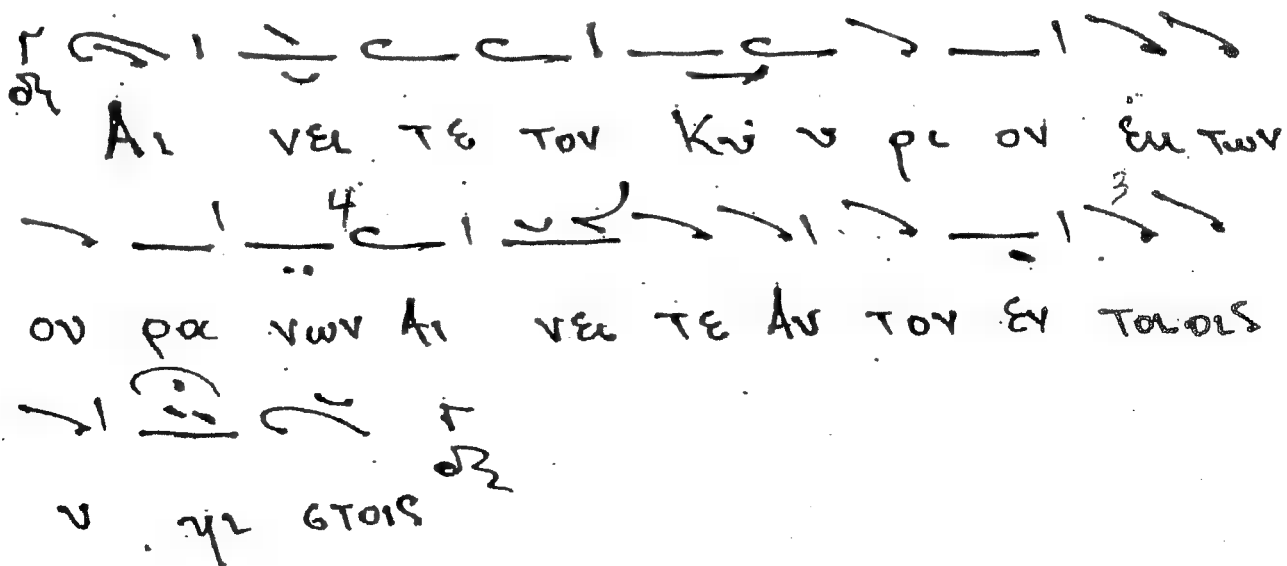 Αι νει τε τον Κύ υ ρι ον ἐκ των
4 3
ου ρα νων Αι νει τε Αυ τον ἐν τοιοις
υ ψι στοις